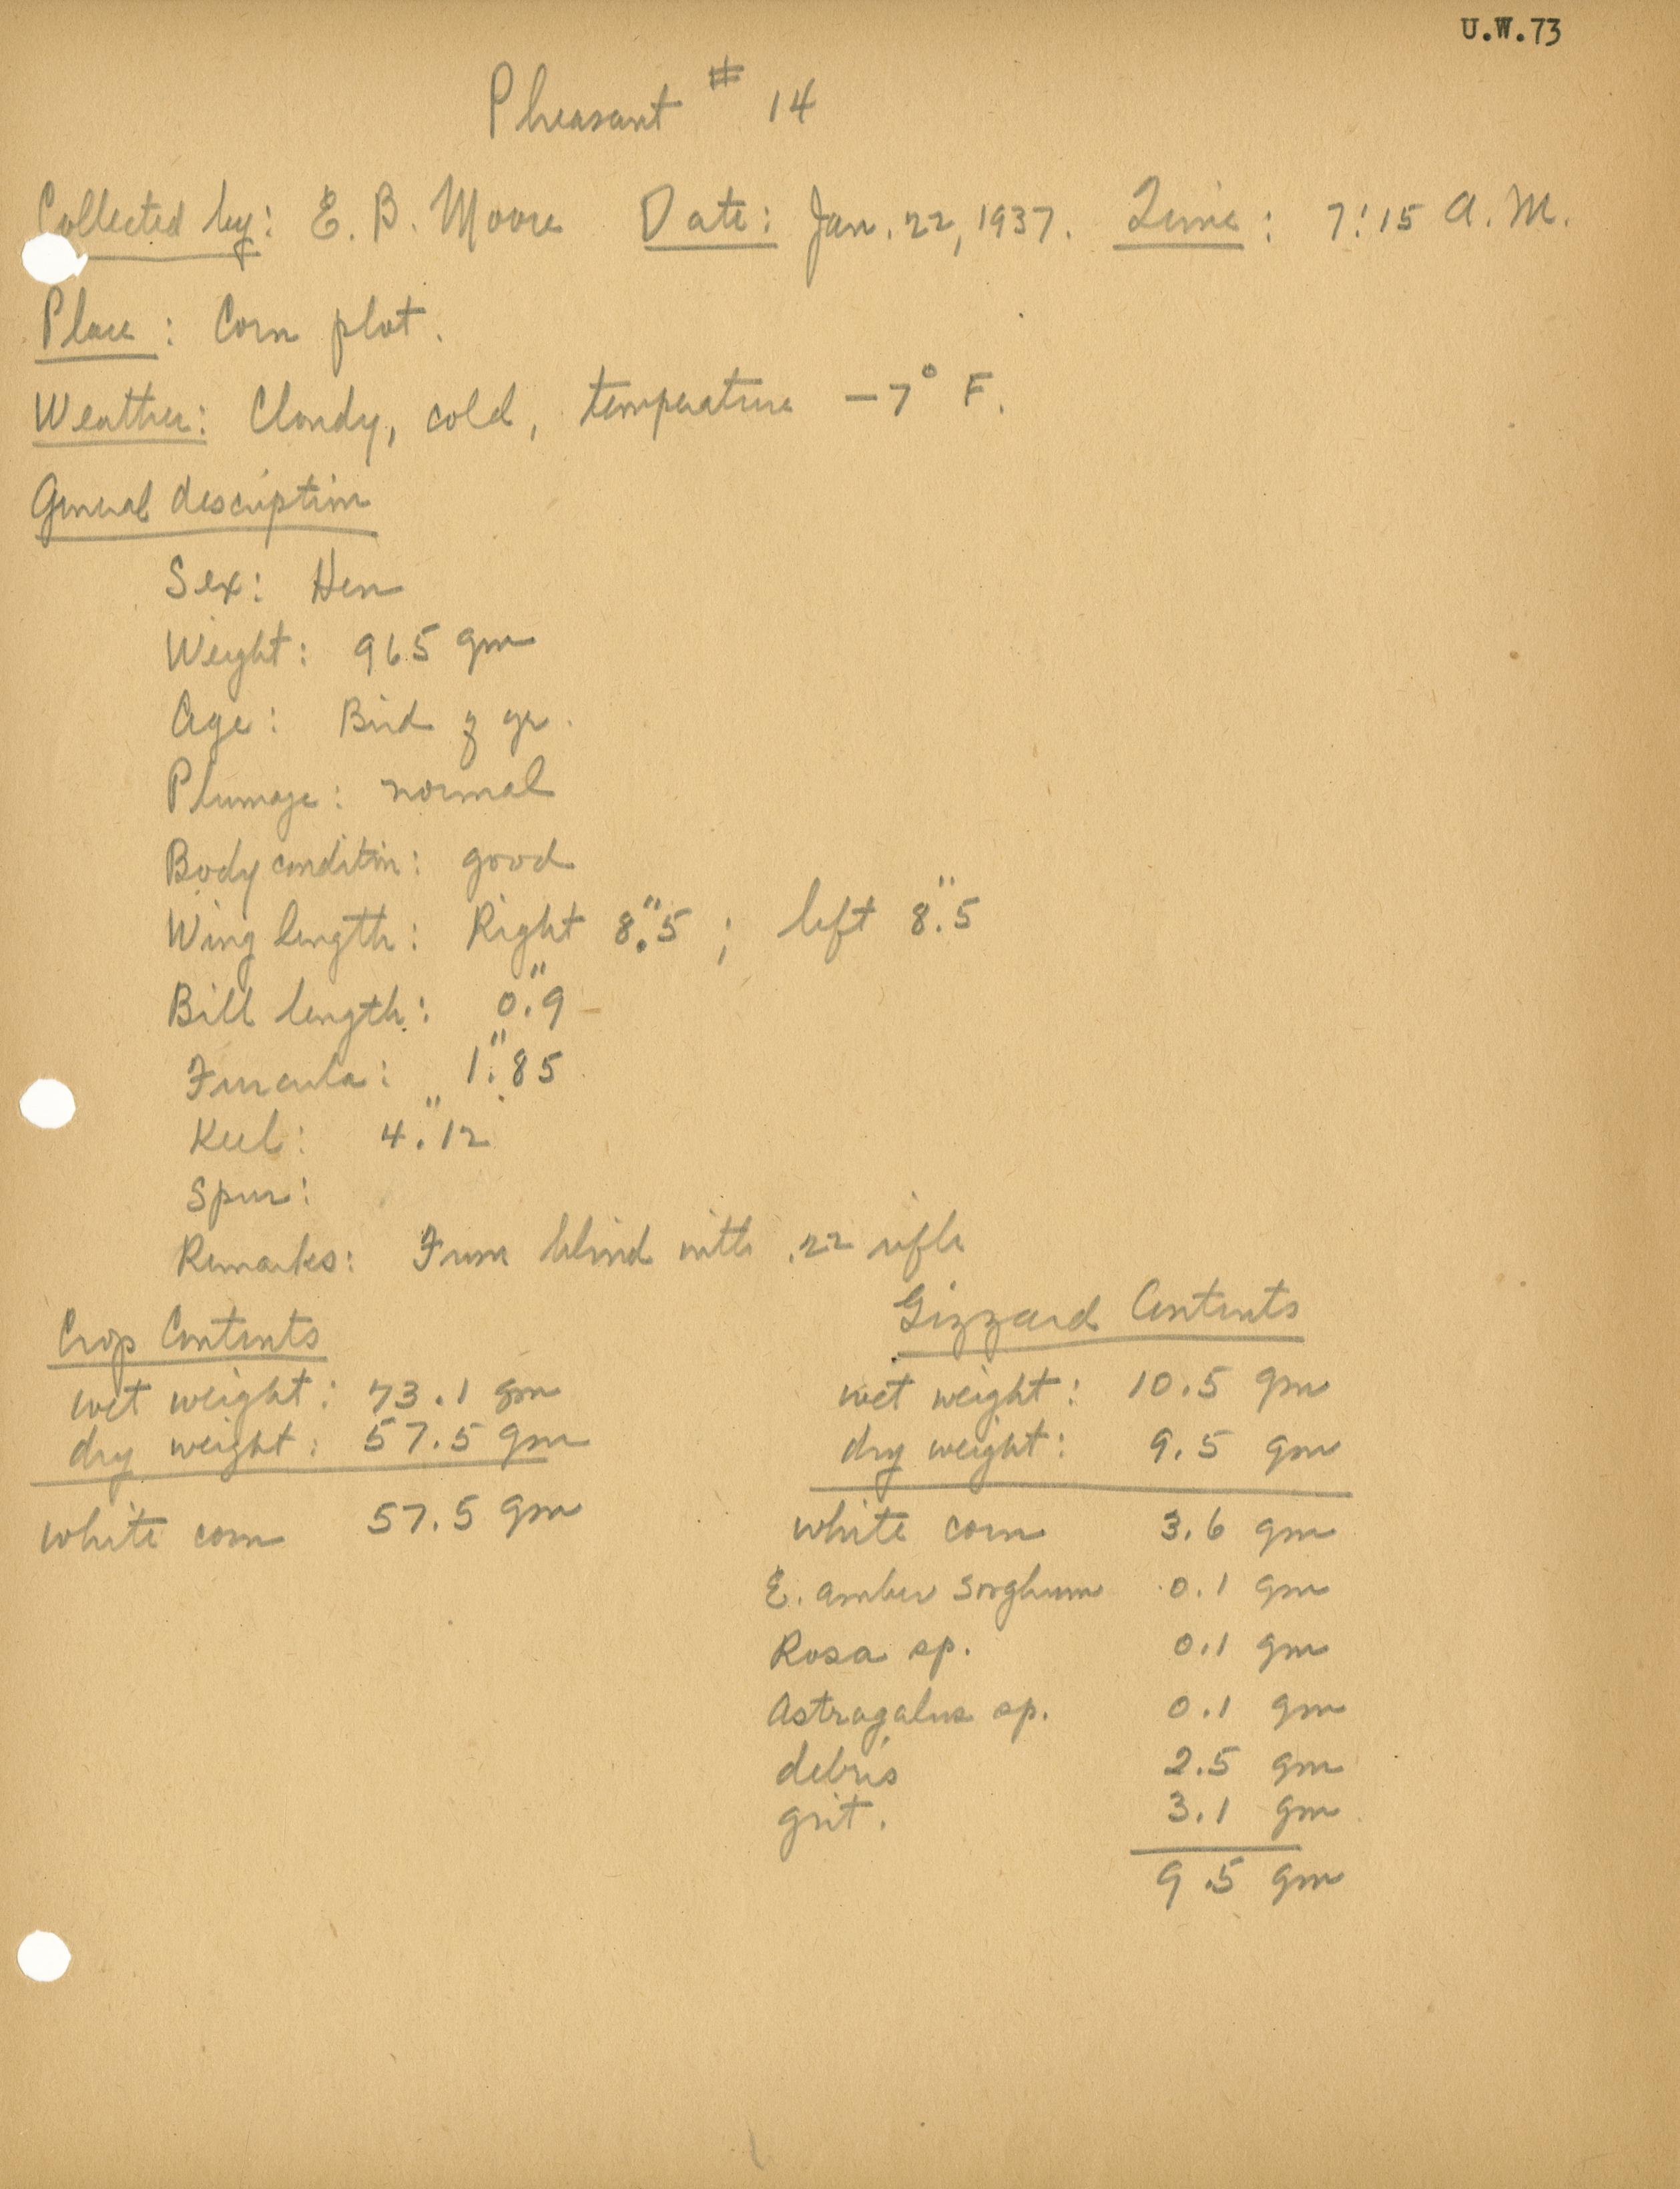 U.W.73
Pheasant # 14
Collected by: E. B. Moore Date: Jan. 22, 1937. Time: 7:15 A.M.
Place: Corn plot.
Weather: Cloudy, cold, temperature -7° F.
General description
Sex: Hen
Weight: 965 gm
Age: Bird of yr.
Plumage: normal
Body condition: good
Wing length: Right 8".5; left 8".5
Bill length: 0".9
Furcula: 1".85
Keel: 4".12
Spur:
Remarks: From blind with .22 rifle
Crop Contents
wet weight: 73.1 gm
dry weight: 57.5 gm
white corn 57.5 gm
Gizzard Contents
wet weight: 10.5 gm
dry weight: 9.5 gm
white corn 3.6 gm
E. amber sorghum 0.1 gm
Rosa sp. 0.1 gm
Astragalus sp. 0.1 gm
debris 2.5 gm
grit. 3.1 gm
9.5 gm